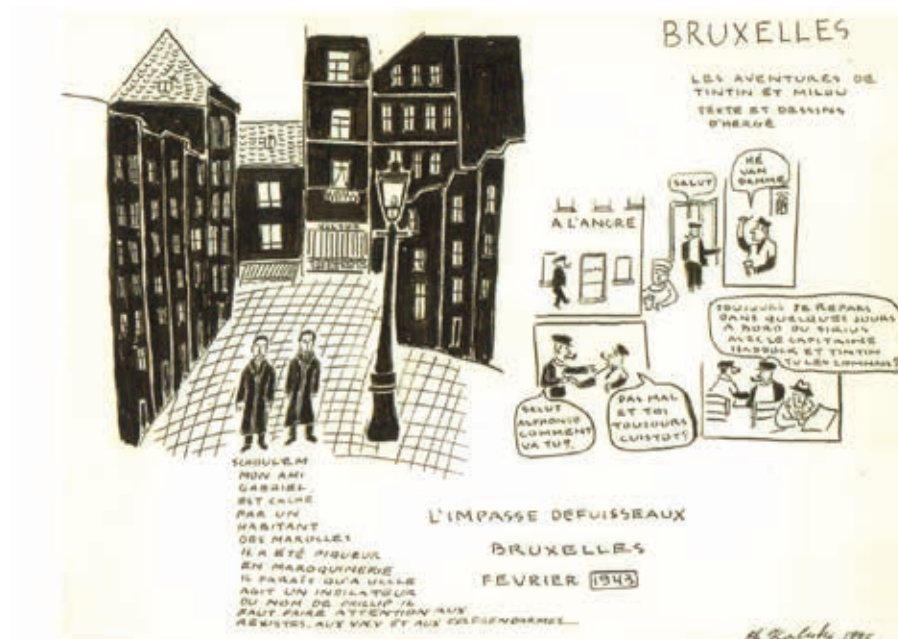 BRUXELLES
LES AVENTURES DE
TINTIN ET MILOU
TEXTE ET DESSINS
D'HERGÉ
A L'ANCRE
SALUT
HÉ
VAN
DAMME
SALUT
ALPHONSE
COMMENT
VA TU?
PAS MAL
ET TOI
TOUJOURS
CUISTOT?
TOUJOURS JE REPARS
DANS QUELQUES JOURS
A BORD DU SIRIUS
AVEC LE CAPITAINE
HADDOCK ET TINTIN
TU LES CONNAIS?
SCHOULEM
MON AMI
GABRIEL
EST CACHÉ
PAR UN
HABITANT
DES MAROLLES
IL A ÉTÉ PIQUEUR
EN MAROQUINERIE
IL PARAÎT QU'A UCCLE
AGIT UN INDICATEUR
DU NOM DE PHILLIP IL
FAUT FAIRE ATTENTION AUX
REXISTES, AUX VNV ET AUX
L'IMPASSE DEFUISSEAUX
BRUXELLES
FEVRIER 1943